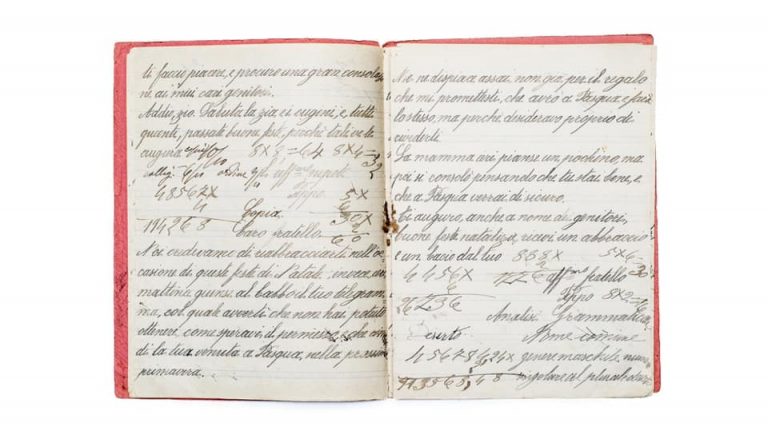 ti faccio piacere, e procuro una gran consolazio
ne ai miei cari genitori.
Addio, zio. Saluta la zia ei cugini, e tutti
quanti, passate buone feste, perchè tali ve le
augura 8 x 8 = 64 8 x 4 = 32
aff.mo nipote
48567 x Pippo 5 x
4 6
194268 Copia 30 x
Caro fratello
Noi credevamo di riabbracciarti nell'oc
casione di queste feste di Natale; invece, ieri
mattina, giunse al babbo il tuo telegram
ma, col quale avverti che non hai potuto
ottenere, come speravi, il permesso, e che
di la tua venuta a Pasqua, nella prossima
primavera.
Me ne dispiace assai, non già per il regalo
che mi promettesti, che avrò a Pasqua
lo stesso, ma perchè desideravo proprio di
vederti.
La mamma ieri pianse un pochino, ma
poi si consolò pensando che tu stai bene, e
che a Pasqua verrai di sicuro.
Ti auguro, anche a nome dei genitori,
buone feste natalizie, ricevi un abbraccio
e un bacio dal tuo 5 x 6
4456 x aff.mo fratello 30
Pippo
Analisi Grammaticale
Nome comune
genere maschile, nume
singolare al plurale